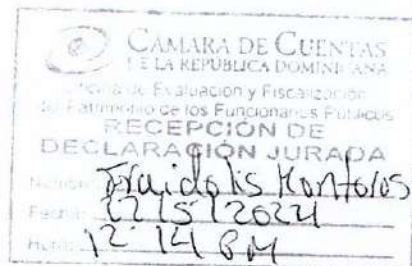 CÁMARA DE CUENTAS
DE LA REPÚBLICA DOMINICANA
Oficina de Evaluación y Fiscalización
de Patrimonio de los Funcionarios Públicos
RECEPCIÓN DE
DECLARACIÓN JURADA
Fecha:
Hora: 12 14